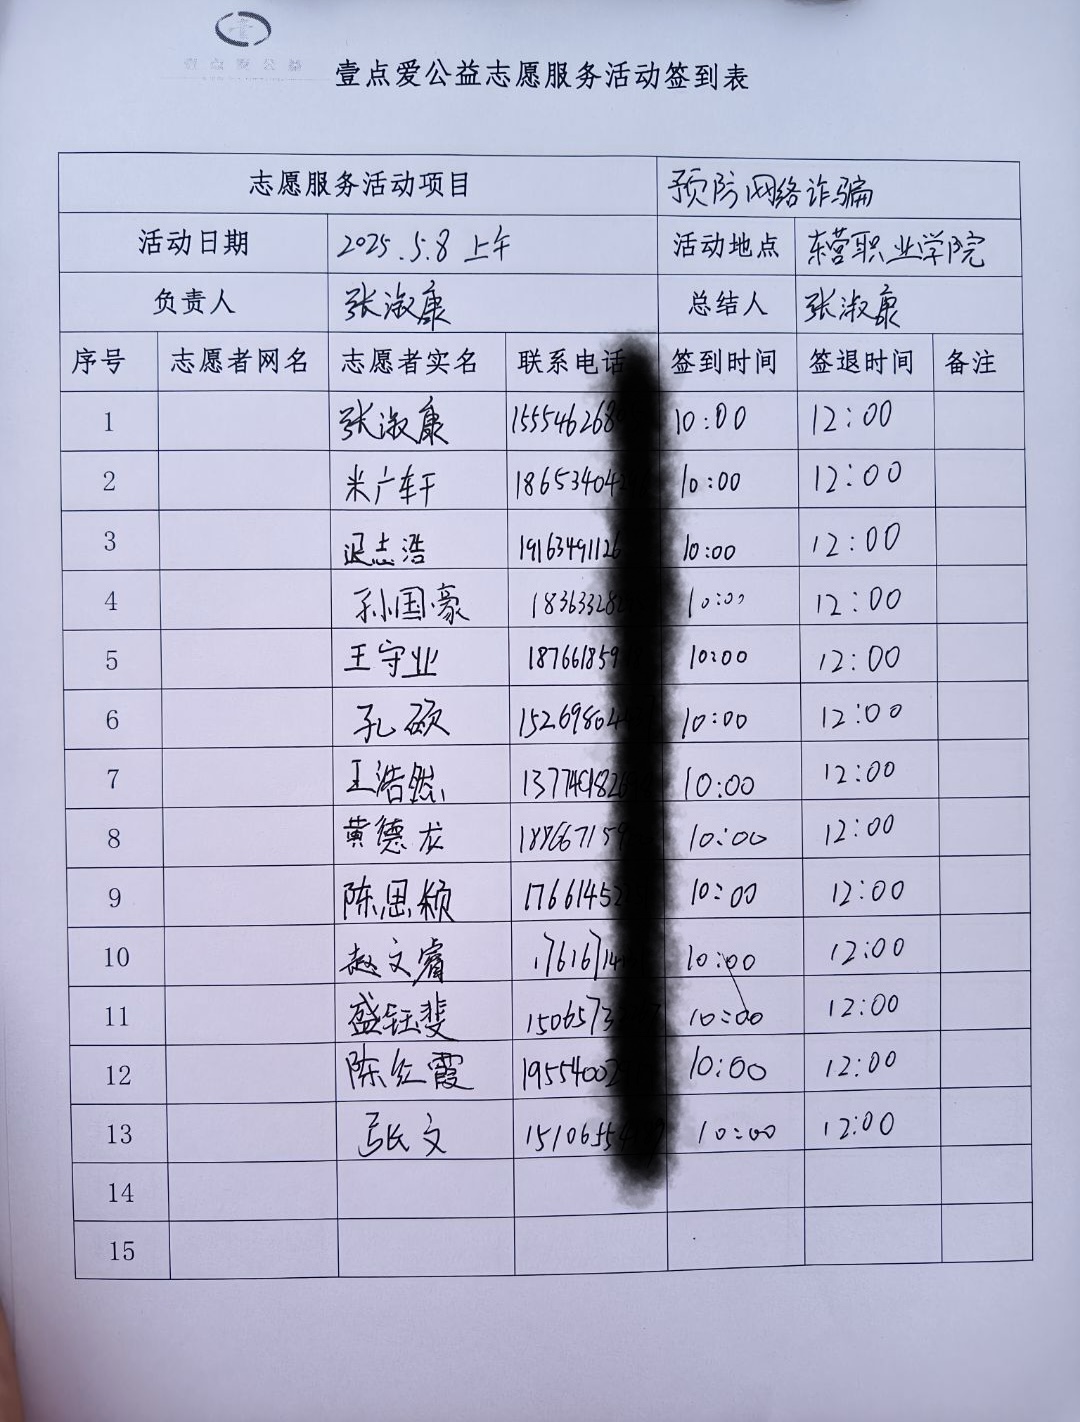 壹点爱公益
壹点爱公益志愿服务活动签到表
志愿服务活动项目 预防网络诈骗
活动日期 2025.5.8 上午 活动地点 东营职业学院
负责人 张淑康 总结人 张淑康
序号 志愿者网名 志愿者实名 联系电话 签到时间 签退时间 备注
1 张淑康 155546268 10:00 12:00
2 米广轩 186534042 10:00 12:00
3 迟志浩 1916349112 10:00 12:00
4 孙国豪 18363328 10:00 12:00
5 王守业 187661859 10:00 12:00
6 孔硕 15269804 10:00 12:00
7 王浩然 10:00 12:00
8 黄德龙 10:00 12:00
9 陈思颖 17661452 10:00 12:00
10 赵文睿 17616714 10:00 12:00
11 盛钰斐 1506573 10:00 12:00
12 陈红霞 19554002 10:00 12:00
13 张文 15106554 10:00 12:00
14
15